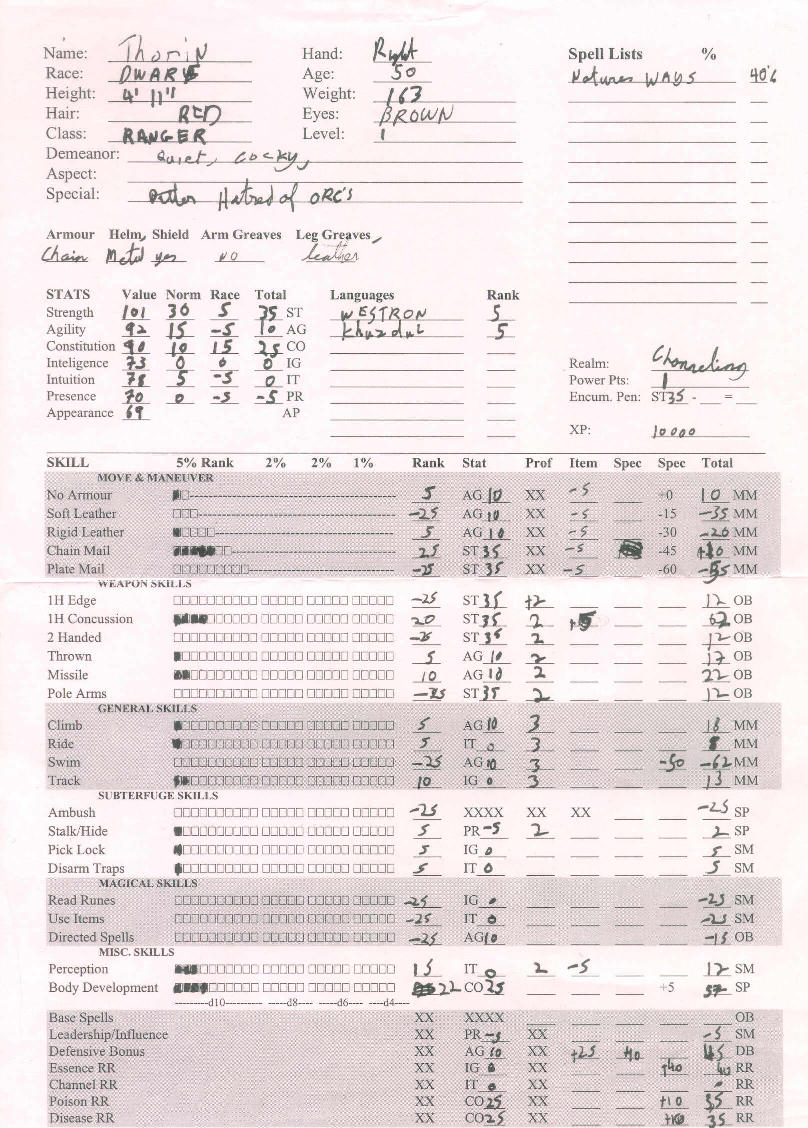 Name: Thorin Hand: Right Spell Lists %
Race: DWARF Age: 50 Natures WAYS 40%
Height: 4' 11" Weight: 163
Hair: RED Eyes: BROWN
Class: RANGER Level: 1
Demeanor: Quiet, cocky,
Aspect:
Special: Hatred of ORC'S
Armour Helm, Shield Arm Greaves Leg Greaves
Chain Metal yes NO leather
STATS Value Norm Race Total Languages Rank
Strength 101 30 5 35 ST WESTRON 5
Agility 92 15 -5 10 AG Khuzdul 5
Constitution 90 10 15 25 CO
Inteligence 73 0 0 0 IG Realm: Channeling
Intuition 78 5 -5 0 IT Power Pts: 1
Presence 70 0 -5 -5 PR Encum. Pen: ST35 - =
Appearance 69 AP
XP: 10000
SKILL 5% Rank 2% 2% 1% Rank Stat Prof Item Spec Spec Total
MOVE & MANEUVER
No Armour 5 AG 10 XX -5 +0 10 MM
Soft Leather -25 AG 10 XX -5 -15 -35 MM
Rigid Leather 5 AG 10 XX -5 -30 -20 MM
Chain Mail 25 ST 35 XX -5 -45 +10 MM
Plate Mail -25 ST 35 XX -5 -60 -55 MM
WEAPON SKILLS
1H Edge -25 ST 35 +2 12 OB
1H Concussion 20 ST 35 2 +5 62 OB
2 Handed -25 ST 35 2 12 OB
Thrown 5 AG 10 2 17 OB
Missile 10 AG 10 2 22 OB
Pole Arms ST 35 2 12 OB
GENERAL SKILLS
Climb 5 AG 10 3 18 MM
Ride 5 IT 0 3 8 MM
Swim -25 AG 10 3 -50 -62 MM
Track 10 IG 0 3 13 MM
SUBTERFUGE SKILLS
Ambush -25 XXXX XX XX -25 SP
Stalk/Hide 5 PR -5 2 2 SP
Pick Lock 5 IG 0 5 SM
Disarm Traps 5 IT 0 5 SM
MAGICAL SKILLS
Read Runes -25 IG 0 -25 SM
Use Items -25 IT 0 -25 SM
Directed Spells -25 AG 10 -15 OB
MISC. SKILLS
Perception 15 IT 0 2 -5 12 SM
Body Development 22 CO 25 +5 SP
--------d10---------- -----d8---- ----d6---- ---d4----
Base Spells XX XXXX OB
Leadership/Influence XX PR -5 XX -5 SM
Defensive Bonus XX AG 10 XX +25 +10 45 DB
Essence RR XX IG 0 XX +40 40 RR
Channel RR XX IT 0 XX 0 RR
Poison RR XX CO 25 XX +10 35 RR
Disease RR XX CO 25 XX +10 35 RR